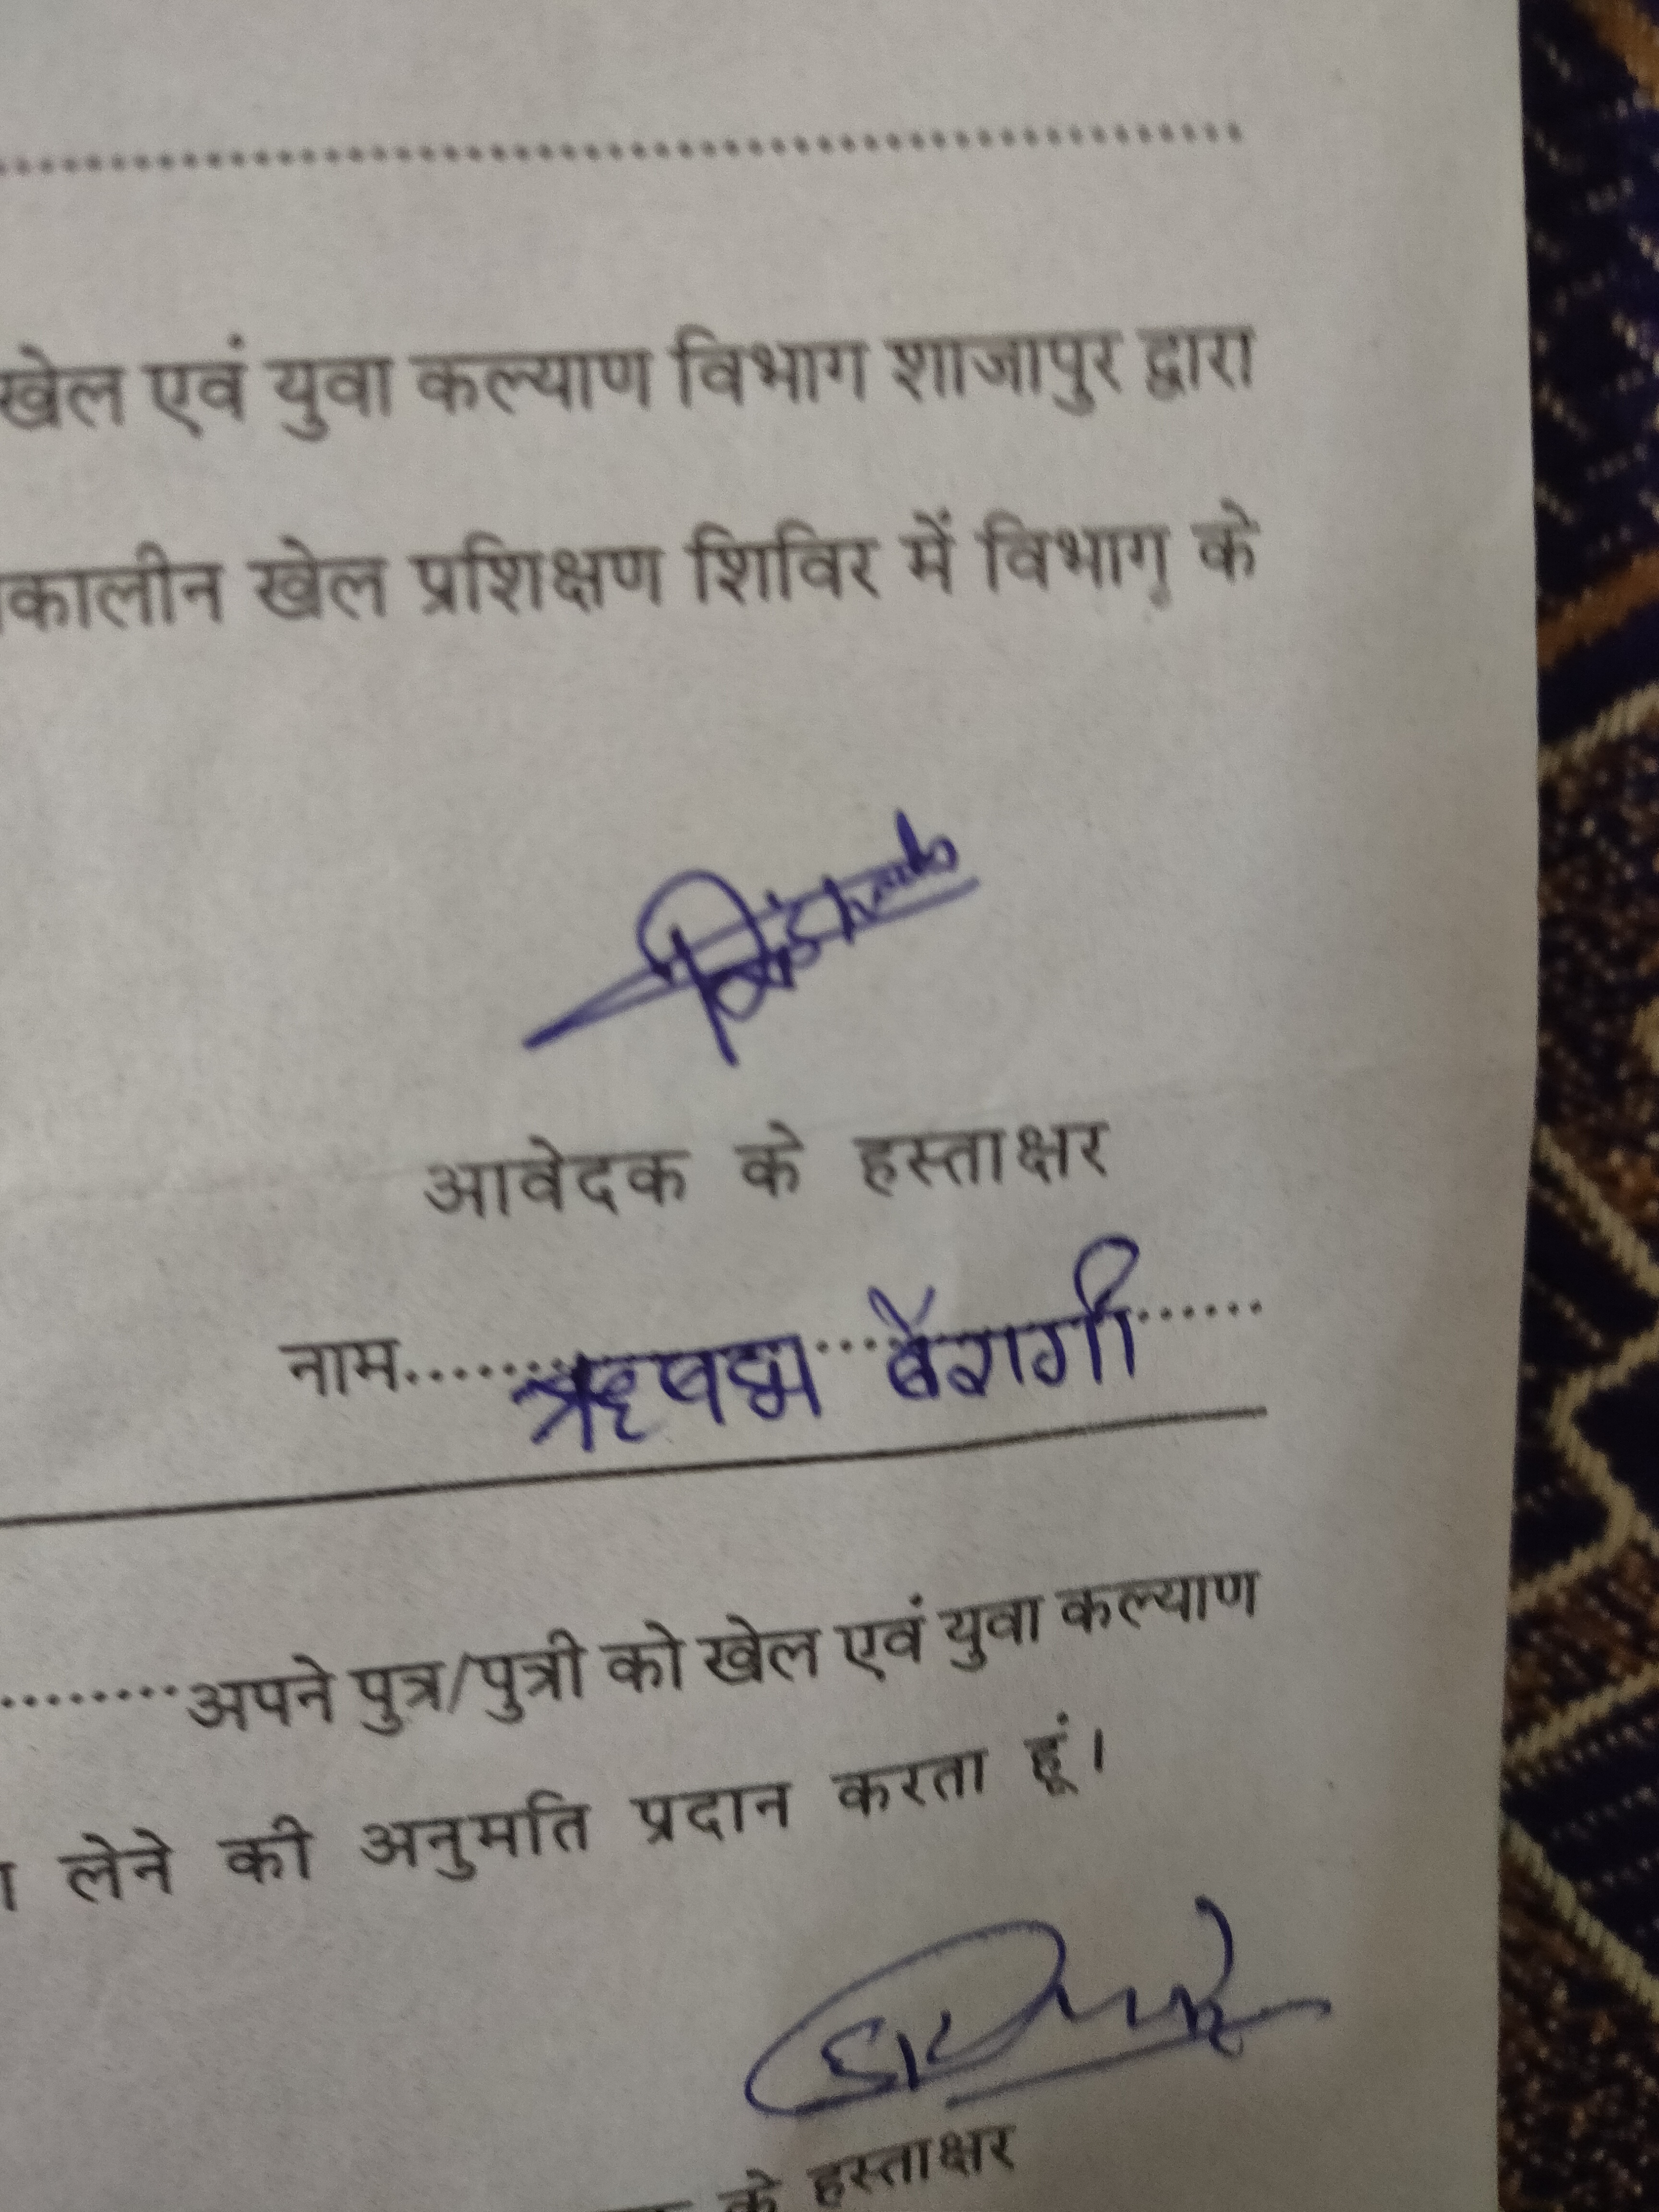 खेल एवं युवा कल्याण विभाग शाजापुर द्वारा
कालीन खेल प्रशिक्षण शिविर में विभाग के
आवेदक के हस्ताक्षर
नाम ऋषभ बैरागी
अपने पुत्र/पुत्री को खेल एवं युवा कल्याण
लेने की अनुमति प्रदान करता हूं।
के हस्ताक्षर